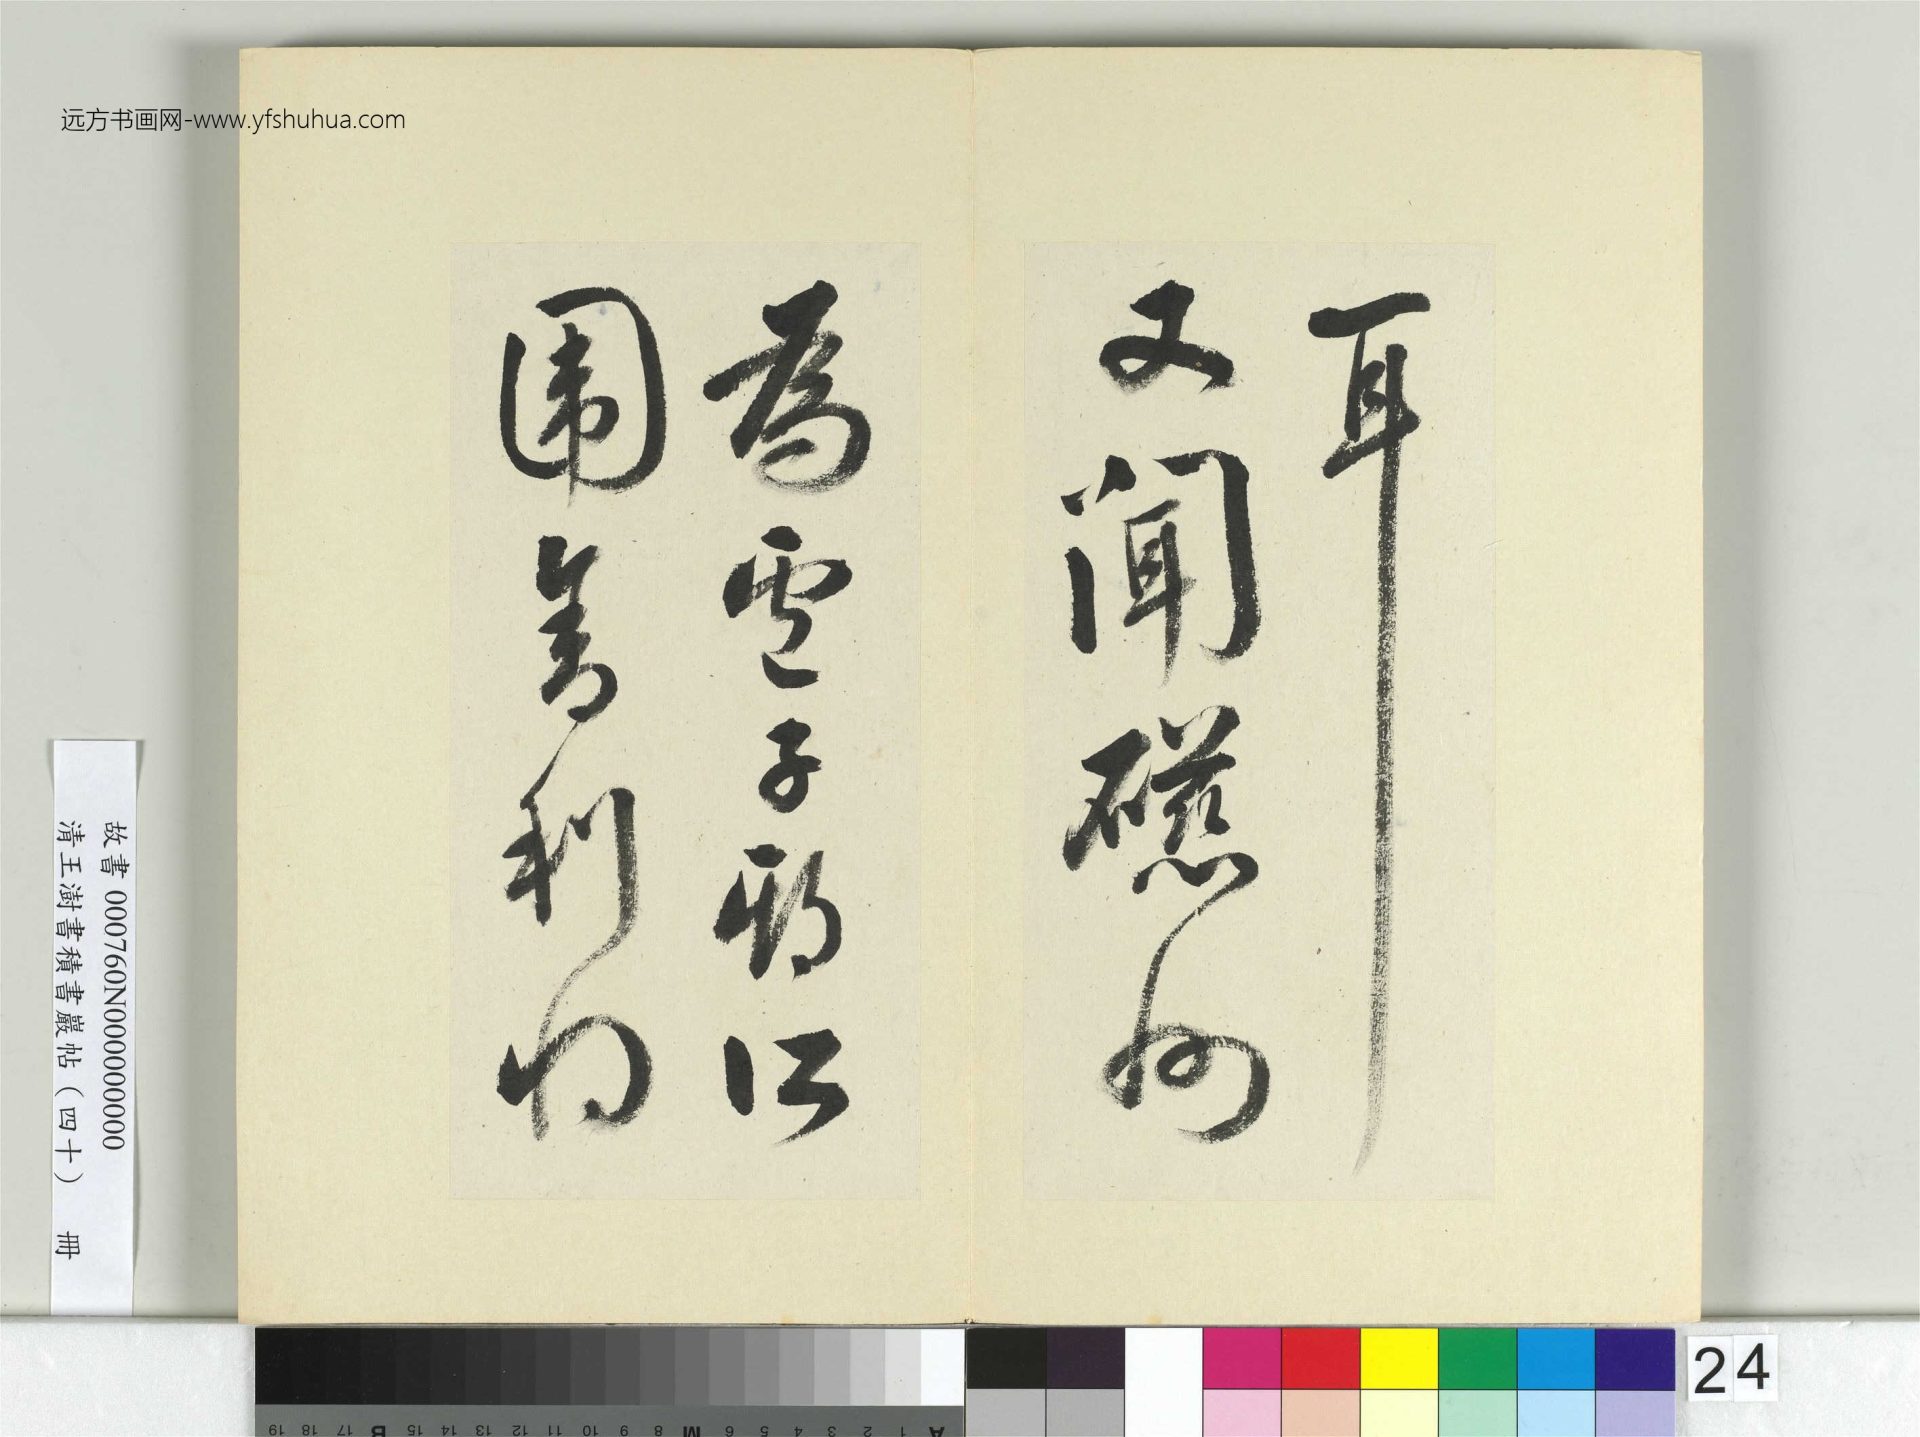 远方书画网-www.yfshuhua.com
耳
又聞磁州
為盧子期所
圍舍利將
故書 000760N000000000
清王澍書積書巖帖(四十) 冊
24
A 1 2 3 4 5 6 M 8 9 10 11 12 13 14 15 B 17 18 19